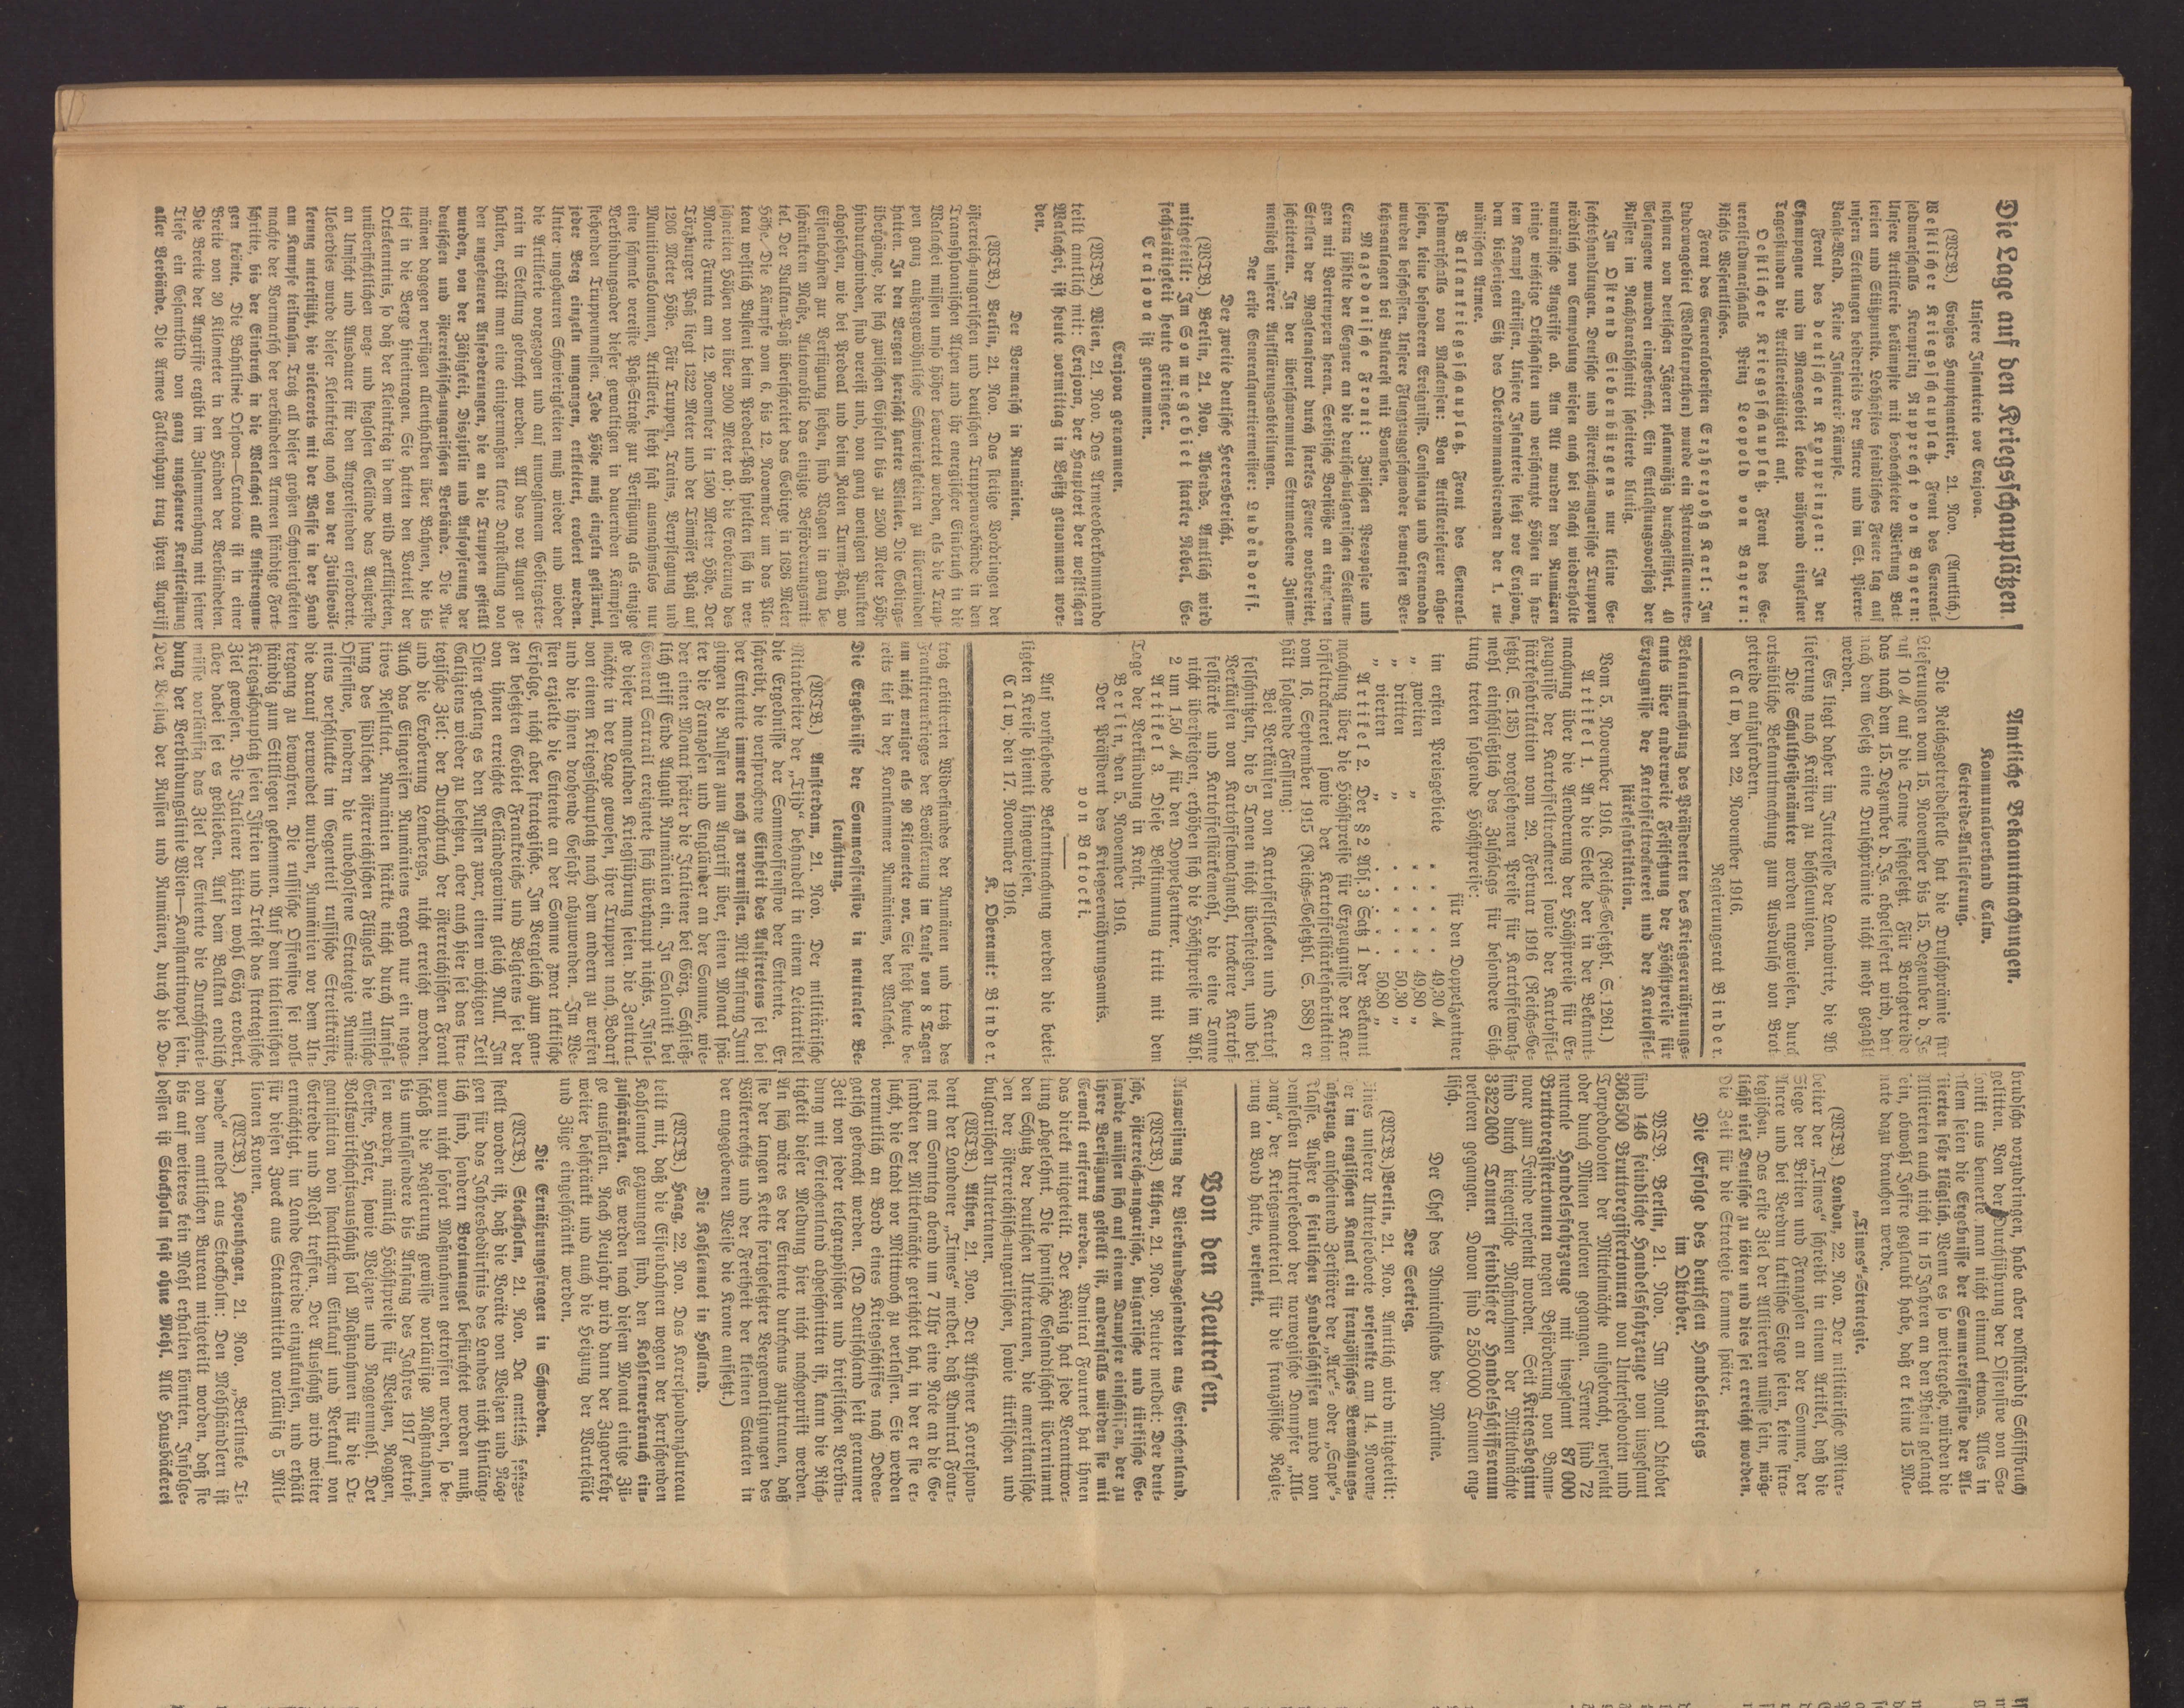 Die Lage auf den Kriegsschauplätzen.
Unsere Infanterie vor Crajova.
(WTB.) Großes Hauptquartier, 21. Nov. (Amtlich.)
Westlicher Kriegsschauplatz. Front des General-
feldmarschalls Kronprinz Rupprecht von Bayern:
Unsere Artillerie bekämpfte mit beobachteter Wirkung Bat-
terien und Stützpunkte. Lebhaftes feindliches Feuer lag auf
unsern Stellungen beiderseits der Ancre und im St. Pierre-
Vaast-Wald. Keine Infanterie-Kämpfe.
Front des deutschen Kronprinzen: In der
Champagne und im Maasgebiet lebte während einzelner
Tagesstunden die Artillerietätigkeit auf.
Oestlicher Kriegsschauplatz. Front des Ge-
neralfeldmarschalls Prinz Leopold von Bayern:
Nichts Wesentliches.
Front des Generalobersten Erzherzog Karl: Im
Ludowagebiet (Waldkarpathen) wurde ein Patrouillenunter-
nehmen von deutschen Jägern planmäßig durchgeführt. 40
Gefangene wurden eingebracht. Ein Entlastungsvorstoß der
Russen im Nachbarabschnitt scheiterte blutig.
Im Ostrand Siebenbürgens nur kleine Ge-
fechtshandlungen. Deutsche und österreich-ungarische Truppen
nördlich von Campolung wiesen auch bei Nacht wiederholte
rumänische Angriffe ab. Am Alt wurden den Rumänen
einige wichtige Ortschaften und verschanzte Höhen in har-
tem Kampf entrissen. Unsere Infanterie steht vor Crajova,
dem bisherigen Sitz des Oberkommandierenden der 1. ru-
mänischen Armee.
Balkankriegsschauplatz. Front des General-
feldmarschalls von Mackensen: Von Artilleriefeuer abge-
sehen, keine besonderen Ereignisse. Constanza und Cernavoda
wurden beschossen. Unsere Fluggeschwader bewarfen Ver-
kehrsanlagen bei Bukarest mit Bomben.
Mazedonische Front: Zwischen Prespasee und
Cerna fühlte der Gegner an die deutsch-bulgarischen Stellun-
gen mit Vortruppen heran. Serbische Vorstöße an einzelnen
Stellen der Moglenafront durch starkes Feuer vorbereitet,
scheiterten. In der überschwemmten Strumaebene Zusam-
menstoß unserer Aufklärungsabteilungen.
Der erste Generalquartiermeister: Ludendorff.
Der zweite deutsche Heeresbericht.
(WTB.) Berlin, 21. Nov. Abends. Amtlich wird
mitgeteilt: Im Sommegebiet starker Nebel. Ge-
fechtstätigkeit heute geringer.
Craiova ist genommen.
Crajova genommen.
(WTB.) Wien, 21. Nov. Das Armeeoberkommando
teilt amtlich mit: Crajova, der Hauptort der westlichen
Walachei, ist heute vormittag in Besitz genommen wor-
den.
Der Vormarsch in Rumänien.
(WTB.) Berlin, 21. Nov. Das stetige Vordringen der
österreich-ungarischen und deutschen Truppenverbände in den
Transsylvanischen Alpen und ihr energischer Einbruch in die
Walachei müssen umso höher bewertet werden, als die Trup-
pen ganz außergewöhnliche Schwierigkeiten zu überwinden
hatten. In den Bergen herrscht harter Winter. Die Gebirgs-
übergänge, die sich zwischen Gipfeln bis zu 2500 Meter Höhe
hindurchwinden, sind vereist und, von ganz wenigen Punkten
abgesehen, wie bei Predeal und beim Roten Turm-Paß, wo
Eisenbahnen zur Verfügung stehen, sind Wagen in ganz be-
schränktem Maße, Automobile das einzige Beförderungsmit-
tel. Der Vulkan-Paß überschreitet das Gebirge in 1626 Meter
Höhe. Die Kämpfe vom 6. bis 12. November um das Pla-
teau westlich Busteni beim Predeal-Paß spielten sich in ver-
schneiten Höhen von über 2000 Meter ab; die Eroberung des
Monte Frunta am 12. November in 1500 Meter Höhe. Der
Törzburger Paß liegt 1322 Meter und der Tömöser Paß auf
1206 Meter Höhe. Für Truppen, Trains, Verpflegung und
Munitionskolonnen, Artillerie, steht fast ausnahmslos nur
eine schmale vereiste Paß-Straße zur Verfügung als einzige
Verbindungsader dieser gewaltigen in dauernden Kämpfen
stehenden Truppenmassen. Jede Höhe muß einzeln gestürmt,
jeder Berg einzeln umgangen, erklettert, erobert werden.
Unter ungeheuren Schwierigkeiten muß wieder und wieder
die Artillerie vorgezogen und auf unwegsamen Gebirgster-
rain in Stellung gebracht werden. All das vor Augen ge-
halten, erhält man eine einigermaßen klare Darstellung von
den ungeheuren Anforderungen, die an die Truppen gestellt
wurden, von der Zähigkeit, Disziplin und Aufopferung der
deutschen und österreichisch-ungarischen Verbände. Die Ru-
mänen dagegen verfügen allenthalben über Bahnen, die bis
tief in die Berge hineinragen. Sie hatten den Vorteil der
Ortskenntnis, so daß der Kleinkrieg in dem wild zerklüfteten,
unübersichtlichen weg- und steglosen Gelände das Aeußerste
an Umsicht und Ausdauer für den Angreifenden erforderte.
Ueberdies wurde dieser Kleinkrieg noch von der Zivilbevöl-
kerung unterstützt, die vielerorts mit der Waffe in der Hand
am Kampfe teilnahm. Trotz all dieser großen Schwierigkeiten
machte der Vormarsch der verbündeten Armeen ständige Fort-
schritte, bis der Einbruch in die Walachei alle Anstrengun-
gen krönte. Die Bahnlinie Orsova—Craiova ist in einer
Breite von 30 Kilometer in den Händen der Verbündeten.
Die Breite der Angriffe ergibt im Zusammenhang mit seiner
Tiefe ein Gesamtbild von ganz ungeheurer Kraftleistung
aller Verbände. Die Armee Falkenhayn trug ihren Angriff
Amtliche Bekanntmachungen.
Kommunalverband Calw.
Getreide-Anlieferung.
Die Reichsgetreidestelle hat die Druschprämie für
Lieferungen vom 15. November bis 15. Dezember d. Js
auf 10 M auf die Tonne festgesetzt. Für Brotgetreide
das nach dem 15. Dezember d. Js. abgeliefert wird, dar
nach dem Gesetz eine Druschprämie nicht mehr gezahlt
werden.
Es liegt daher im Interesse der Landwirte, die Ab
lieferung nach Kräften zu beschleunigen.
Die Schultheißenämter werden angewiesen, durch
ortsübliche Bekanntmachung zum Ausdrusch von Brot-
getreide aufzufordern.
Calw, den 22. November 1916.
Regierungsrat Binder.
Bekanntmachung des Präsidenten des Kriegsernährungs-
amts über anderweite Festsetzung der Höchstpreise für
Erzeugnisse der Kartoffeltrocknerei und der Kartoffel-
stärkefabrikation.
Vom 5. November 1916. (Reichs-Gesetzbl. S. 1261.)
Artikel 1. An die Stelle der in der Bekannt-
machung über die Aenderung der Höchstpreise für Er-
zeugnisse der Kartoffeltrocknerei sowie der Kartoffel-
stärkefabrikation vom 29. Februar 1916 (Reichs-Ge-
setzbl. S. 135) vorgesehenen Preise für Kartoffelwalz-
mehl einschließlich des Zuschlags für besondere Sich-
tung treten folgende Höchstpreise:
für den Doppelzentner
im ersten Preisgebiete . . . . 49,30 M
„ zweiten „ . . . . 49,80 „
„ dritten „ . . . . 50,30 „
„ vierten „ . . . . 50,80 „
Artikel 2. Der § 2 Abs. 3 Satz 1 der Bekannt
machung über die Höchstpreise für Erzeugnisse der Kar-
toffeltrocknerei sowie der Kartoffelstärkefabrikation
vom 16. September 1915 (Reichs-Gesetzbl. S. 588) er
hält folgende Fassung:
Bei Verkäufen von Kartoffelflocken und Kartof
felschnitzeln, die 5 Tonen nicht übersteigen, und bei
Verkäufen von Kartoffelwalzmehl, trockener Kartof-
felstärke und Kartoffelstärkemehl, die eine Tonne
nicht übersteigen, erhöhen sich die Höchstpreise im Abs.
2 um 1,50 M für den Doppelzentner.
Artikel 3. Diese Bestimmung tritt mit dem
Tage der Verkündung in Kraft.
Berlin, den 5. November 1916.
Der Präsident des Kriegsernährungsamts.
von Batocki.
Auf vorstehende Bekanntmachung werden die betei-
ligten Kreise hiemit hingewiesen.
Calw, den 17. November 1916.
K. Oberamt: Binder.
trotz erbitterten Widerstandes der Rumänen und trotz des
Franktireurkrieges der Bevölkerung im Laufe von 8 Tagen
um nicht weniger als 90 Kilometer vor. Sie steht heute be-
reits tief in der Kornkammer Rumäniens, der Walachei.
Die Ergebnisse der Sommeoffensive in neutraler Be-
leuchtung.
(WTB.) Amsterdam, 21. Nov. Der militärische
Mitarbeiter der „Tijd“ behandelt in einem Leitartikel
die Ergebnisse der Sommeoffensive der Entente. Er
schreibt, die versprochene Einheit des Auftretens sei bei
der Entente immer noch zu vermissen. Mit Anfang Juni
gingen die Russen zum Angriff über, einen Monat spä-
ter die Franzosen und Engländer an der Somme, wie-
der einen Monat später die Italiener bei Görz. Schließ-
lich griff Ende August Rumänien ein. In Saloniki bei
General Sarrail ereignete sich überhaupt nichts. Infol-
ge dieser mangelnden Kriegführung seien die Zentral-
mächte in der Lage gewesen, ihre Truppen nach Bedarf
von einem Kriegsschauplatz nach dem andern zu werfen
und die ihnen drohende Gefahr abzuwenden. Im We-
sten erzielte die Entente an der Somme zwar taktische
Erfolge, nicht aber strategische. Im Vergleich zum gan-
zen besetzten Gebiet Frankreichs und Belgiens sei der
von ihnen erreichte Geländegewinn gleich Null. Im
Osten gelang es den Russen zwar, einen wichtigen Teil
Galiziens wieder zu besetzen, aber auch hier sei das stra-
tegische Ziel: der Durchbruch der österreichischen Front
und die Eroberung Lembergs, nicht erreicht worden.
Auch das Eingreifen Rumäniens ergab nur ein nega-
tives Resultat. Rumänien stärkte nicht durch Umfas-
sung des südlichen österreichischen Flügels die russische
Offensive, sondern die unbeholfene Strategie Rumä-
niens verschluckte im Gegenteil russische Streitkräfte,
die darauf verwendet wurden, Rumänien vor dem Un-
tergang zu bewahren. Die russische Offensive sei voll-
ständig zum Stilliegen gekommen. Auf dem italienischen
Kriegsschauplatz seien Istrien und Triest das strategische
Ziel gewesen. Die Italiener hätten wohl Görz erobert,
aber dabei sei es geblieben. Auf dem Balkan endlich
müsse vorläufig das Ziel der Entente die Durchschnei-
dung der Verbindungslinie Wien—Konstantinopel sein.
Der Versuch der Russen und Rumänen, durch die Do-
brudscha vorzudringen, habe aber vollständig Schiffbruch
gelitten. Von der Durchführung der Offensive von Sa-
loniki aus bemerke man nicht einmal etwas. Alles in
allem seien die Ergebnisse der Sommeroffensive der Al-
liierten sehr kläglich. Wenn es so weitergehe, würden die
Alliierten auch nicht in 15 Jahren an den Rhein gelangt
sein, obwohl Joffre geglaubt habe, daß er keine 15 Mo-
nate dazu brauchen werde.
„Times“-Strategie.
(WTB.) London, 22. Nov. Der militärische Mitar-
beiter der „Times“ schreibt in einem Artikel, daß die
Siege der Briten und Franzosen an der Somme, der
Ancre und bei Verdun taktische Siege seien, keine stra-
tegischen. Das erste Ziel der Alliierten müsse sein, mög-
lichst viel Deutsche zu töten und dies sei erreicht worden.
Die Zeit für die Strategie komme später.
Die Erfolge des deutschen Handelskriegs
im Oktober.
WTB. Berlin, 21. Nov. Im Monat Oktober
sind 146 feindliche Handelsfahrzeuge von insgesamt
306 500 Bruttoregistertonnen von Unterseebooten und
Torpedobooten der Mittelmächte aufgebracht, versenkt
oder durch Minen verloren gegangen. Ferner sind 72
neutrale Handelsfahrzeuge mit insgesamt 87 000
Bruttoregistertonnen wegen Beförderung von Bann-
ware zum Feinde versenkt worden. Seit Kriegsbeginn
sind durch kriegerische Maßnahmen der Mittelmächte
3 322 000 Tonnen feindlicher Handelsschiffsraum
verloren gegangen. Davon sind 2 550 000 Tonnen eng-
lisch.
Der Chef des Admiralstabs der Marine.
Der Seekrieg.
(WTB.) Berlin, 21. Nov. Amtlich wird mitgeteilt:
Eines unserer Unterseeboote versenkte am 14. Novem-
er im englischen Kanal ein französisches Bewachungs-
fahrzeug, anscheinend Zerstörer der „Arc“- oder „Sape“-
Klasse. Außer 6 feindlichen Handelsschiffen wurde von
demselben Unterseeboot der norwegische Dampfer „Ull-
vang“, der Kriegsmaterial für die französische Regie-
rung an Bord hatte, versenkt.
Von den Neutralen.
Ausweisung der Vierbundsgesandten aus Griechenland.
(WTB.) Athen, 21. Nov. Reuter meldet: Der deut-
sche, österreich-ungarische, bulgarische und türkische Ge-
sandte müssen sich auf einem Dampfer einschiffen, der zu
ihrer Verfügung gestellt ist, andernfalls würden sie mit
Gewalt entfernt werden. Admiral Fournet hat ihnen
das direkt mitgeteilt. Der König hat jede Verantwor-
tung abgelehnt. Die spanische Gesandtschaft übernimmt
den Schutz der deutschen Untertanen, die amerikanische
den der österreichisch-ungarischen, sowie türkischen und
bulgarischen Untertanen.
(WTB.) Athen, 21. Nov. Der Athener Korrespon-
dent der Londoner „Times“ meldet, daß Admiral Four-
net am Sonntag abend um 7 Uhr eine Note an die Ge-
sandten der Mittelmächte gerichtet hat, in der er sie er-
sucht, die Stadt vor Mittwoch zu verlassen. Sie werden
vermutlich an Bord eines Kriegsschiffes nach Dedea-
gatsch gebracht werden. (Da Deutschland seit geraumer
Zeit von jeder telegraphischen und brieflichen Verbin-
dung mit Griechenland abgeschnitten ist, kann die Rich-
tigkeit dieser Meldung hier nicht nachgeprüft werden.
An sich wäre es der Entente durchaus zuzutrauen, daß
sie der langen Kette fortgesetzter Vergewaltigungen des
Völkerrechts und der Freiheit der kleinen Staaten in
der angegebenen Weise die Krone aufsetzt.)
Die Kohlennot in Holland.
(WTB.) Haag, 22. Nov. Das Korrespondenzbureau
teilt mit, daß die Eisenbahnen wegen der herrschenden
Kohlennot gezwungen sind, den Kohlenverbrauch ein-
zuschränken. Es werden nach diesem Monat einige Zü-
ge ausfallen. Nach Neujahr wird dann der Zugverkehr
weiter beschränkt und auch die Heizung der Wartesäle
und Züge eingeschränkt werden.
Die Ernährungsfragen in Schweden.
(WTB.) Stockholm, 21. Nov. Da amtlich festge-
stellt worden ist, daß die Vorräte von Weizen und Rog-
gen für das Jahresbedürfnis des Landes nicht hinläng-
lich sind, sondern Brotmangel befürchtet werden muß,
wenn nicht sofort Maßnahmen getroffen werden, so be-
schloß die Regierung gewisse vorläufige Maßnahmen,
bis umfassendere bis Anfang des Jahres 1917 getrof-
fen werden, nämlich Höchstpreise für Weizen, Roggen,
Gerste, Hafer, sowie Weizen- und Roggenmehl. Der
Volkswirtschaftsausschuß soll Maßnahmen für die Or-
ganisation von staatlichem Einkauf und Verkauf von
Getreide und Mehl treffen. Der Ausschuß wird weiter
ermächtigt, im Lande Getreide einzukaufen, und erhält
für diesen Zweck aus Staatsmitteln vorläufig 5 Mil-
lionen Kronen.
(WTB.) Kopenhagen, 21. Nov. „Berlinske Ti-
dende“ meldet aus Stockholm: Den Mehlhändlern ist
von dem amtlichen Bureau mitgeteilt worden, daß sie
bis auf weiteres kein Mehl erhalten könnten. Infolge-
dessen ist Stockholm fast ohne Mehl. Alle Hausbäckerei